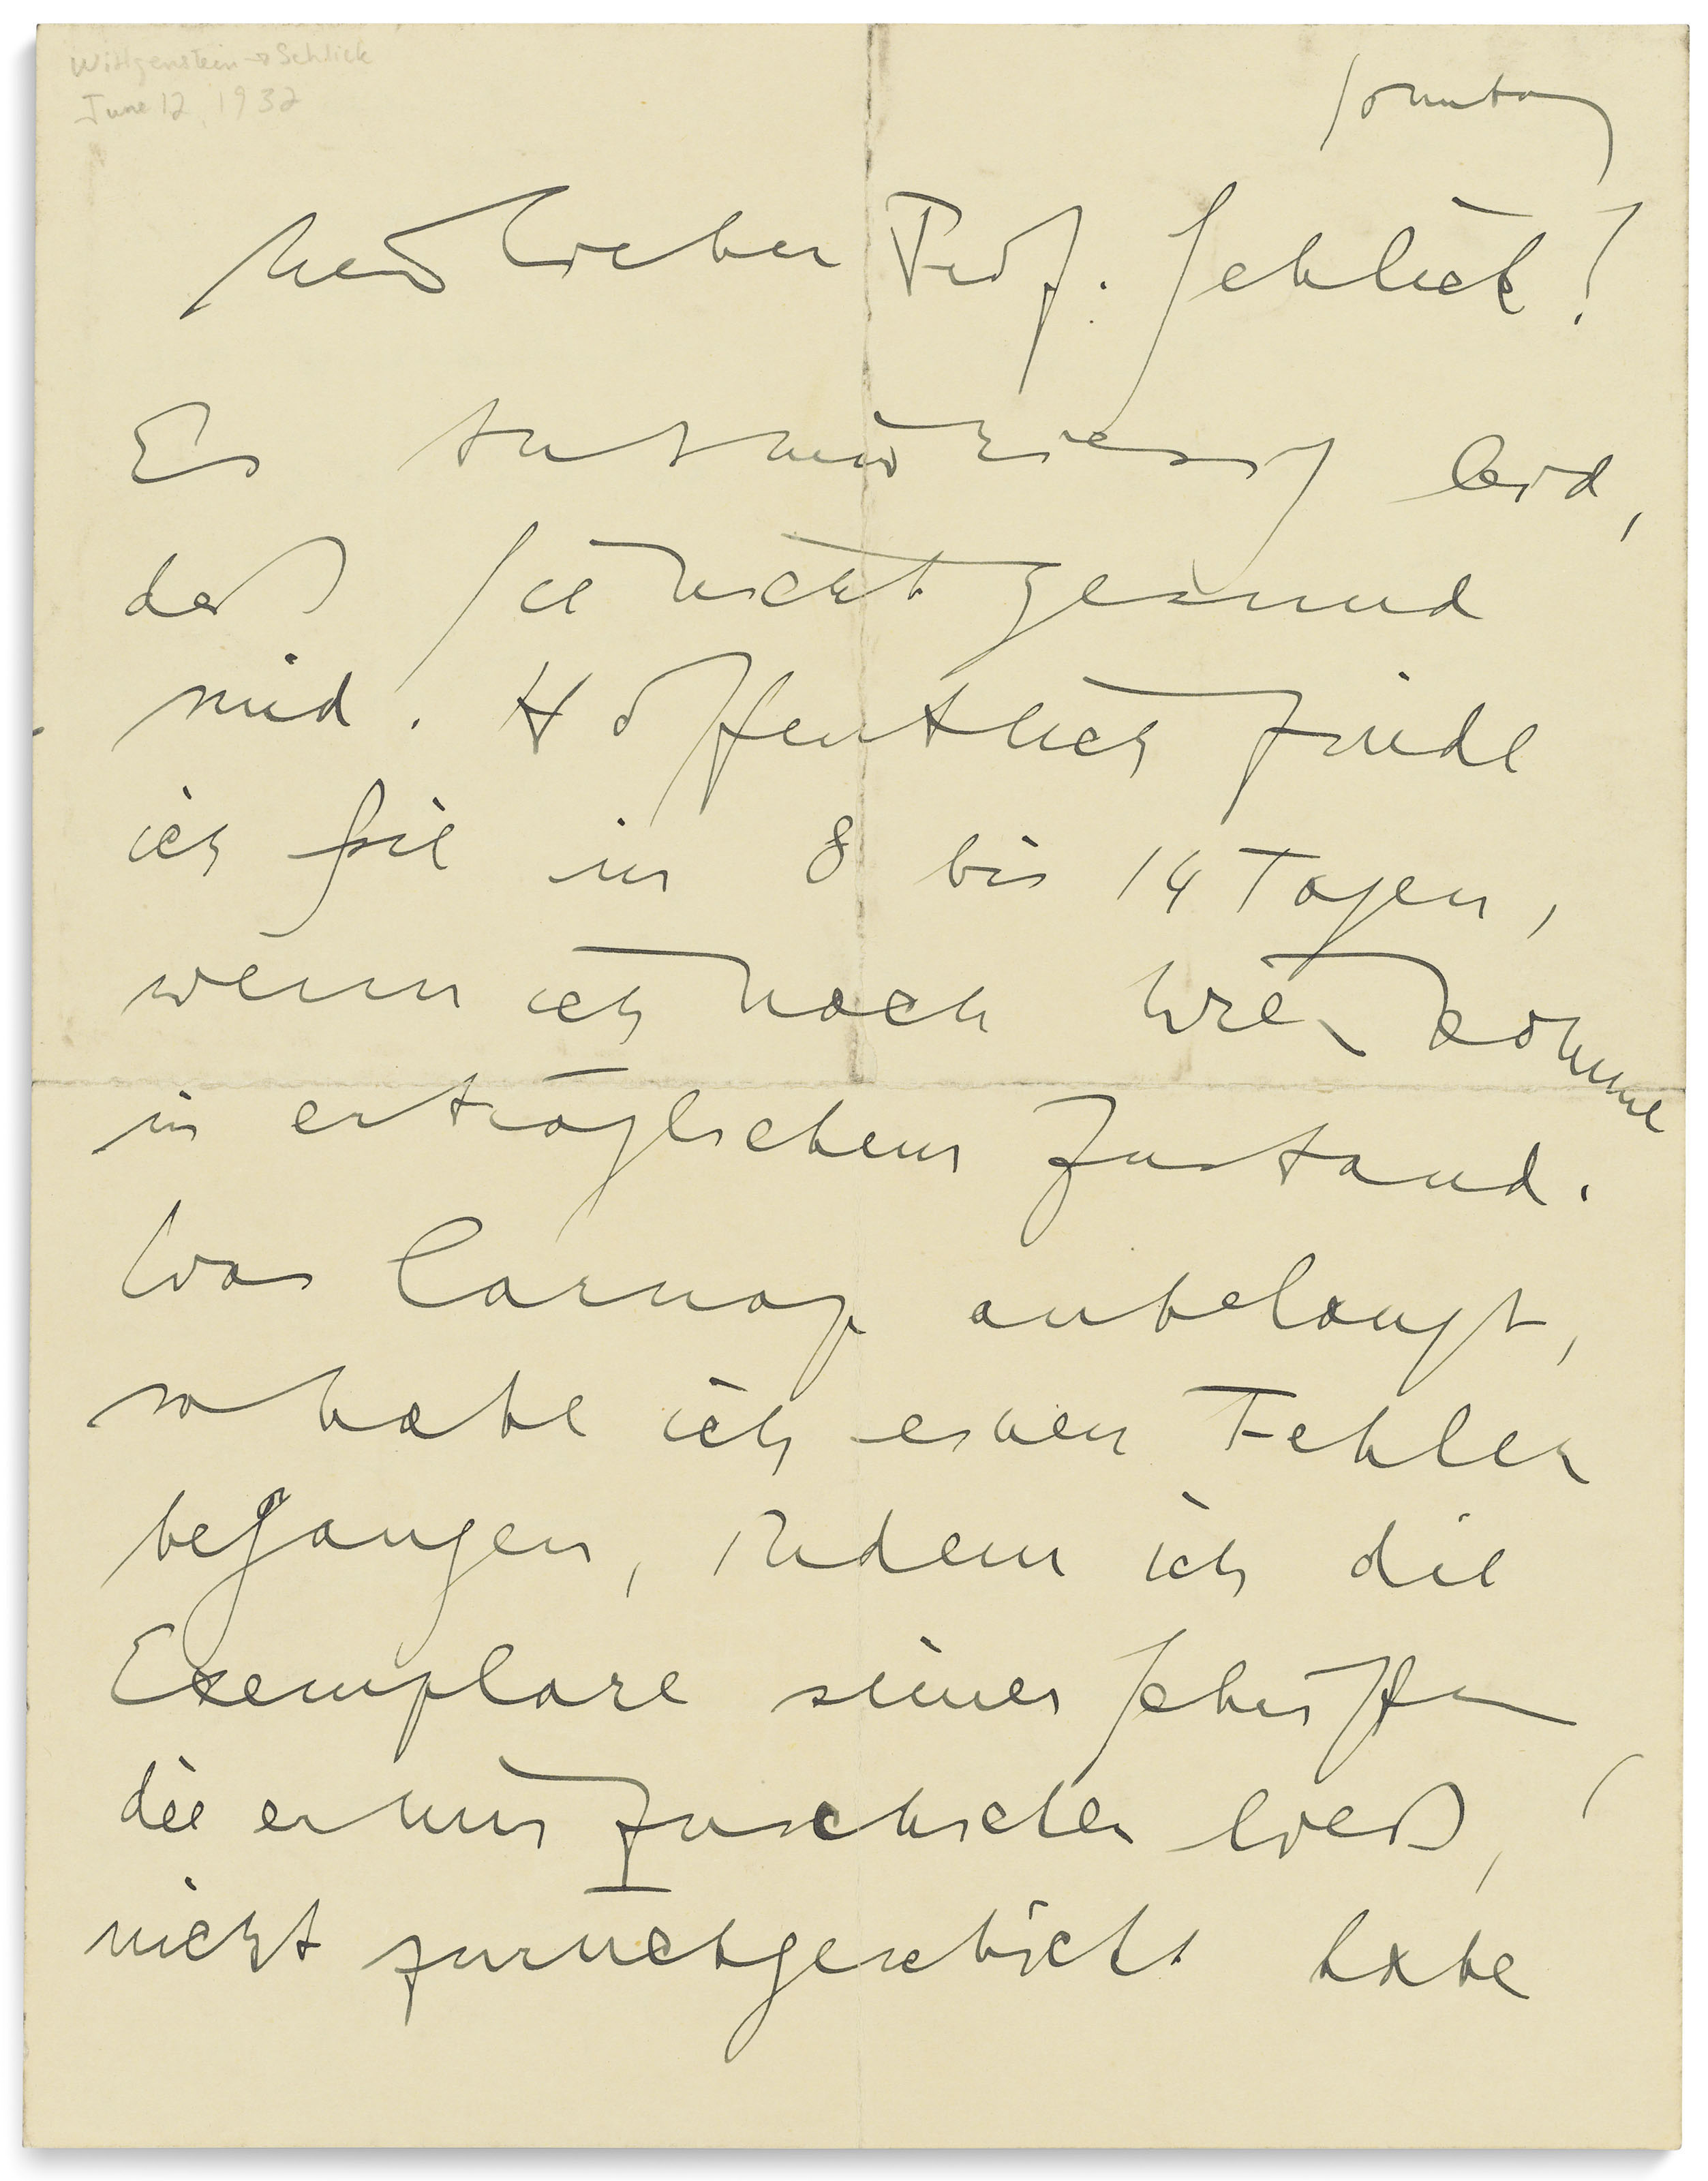 Wittgenstein → Schlick
June 12, 1932
Sonntag
Mein lieber Prof. Schlick!
Es tut mir riesig leid,
daß Sie nicht gesund
sind. Hoffentlich finde
ich Sie in 8 bis 14 Tagen,
wenn ich nach Wien komme
in erträglichem Zustand.
Was Carnap anbelangt,
so habe ich einen Fehler
begangen, indem ich die
Exemplare seiner Schriften
die er mir zuschicken ließ,
nicht zurückgeschickt habe